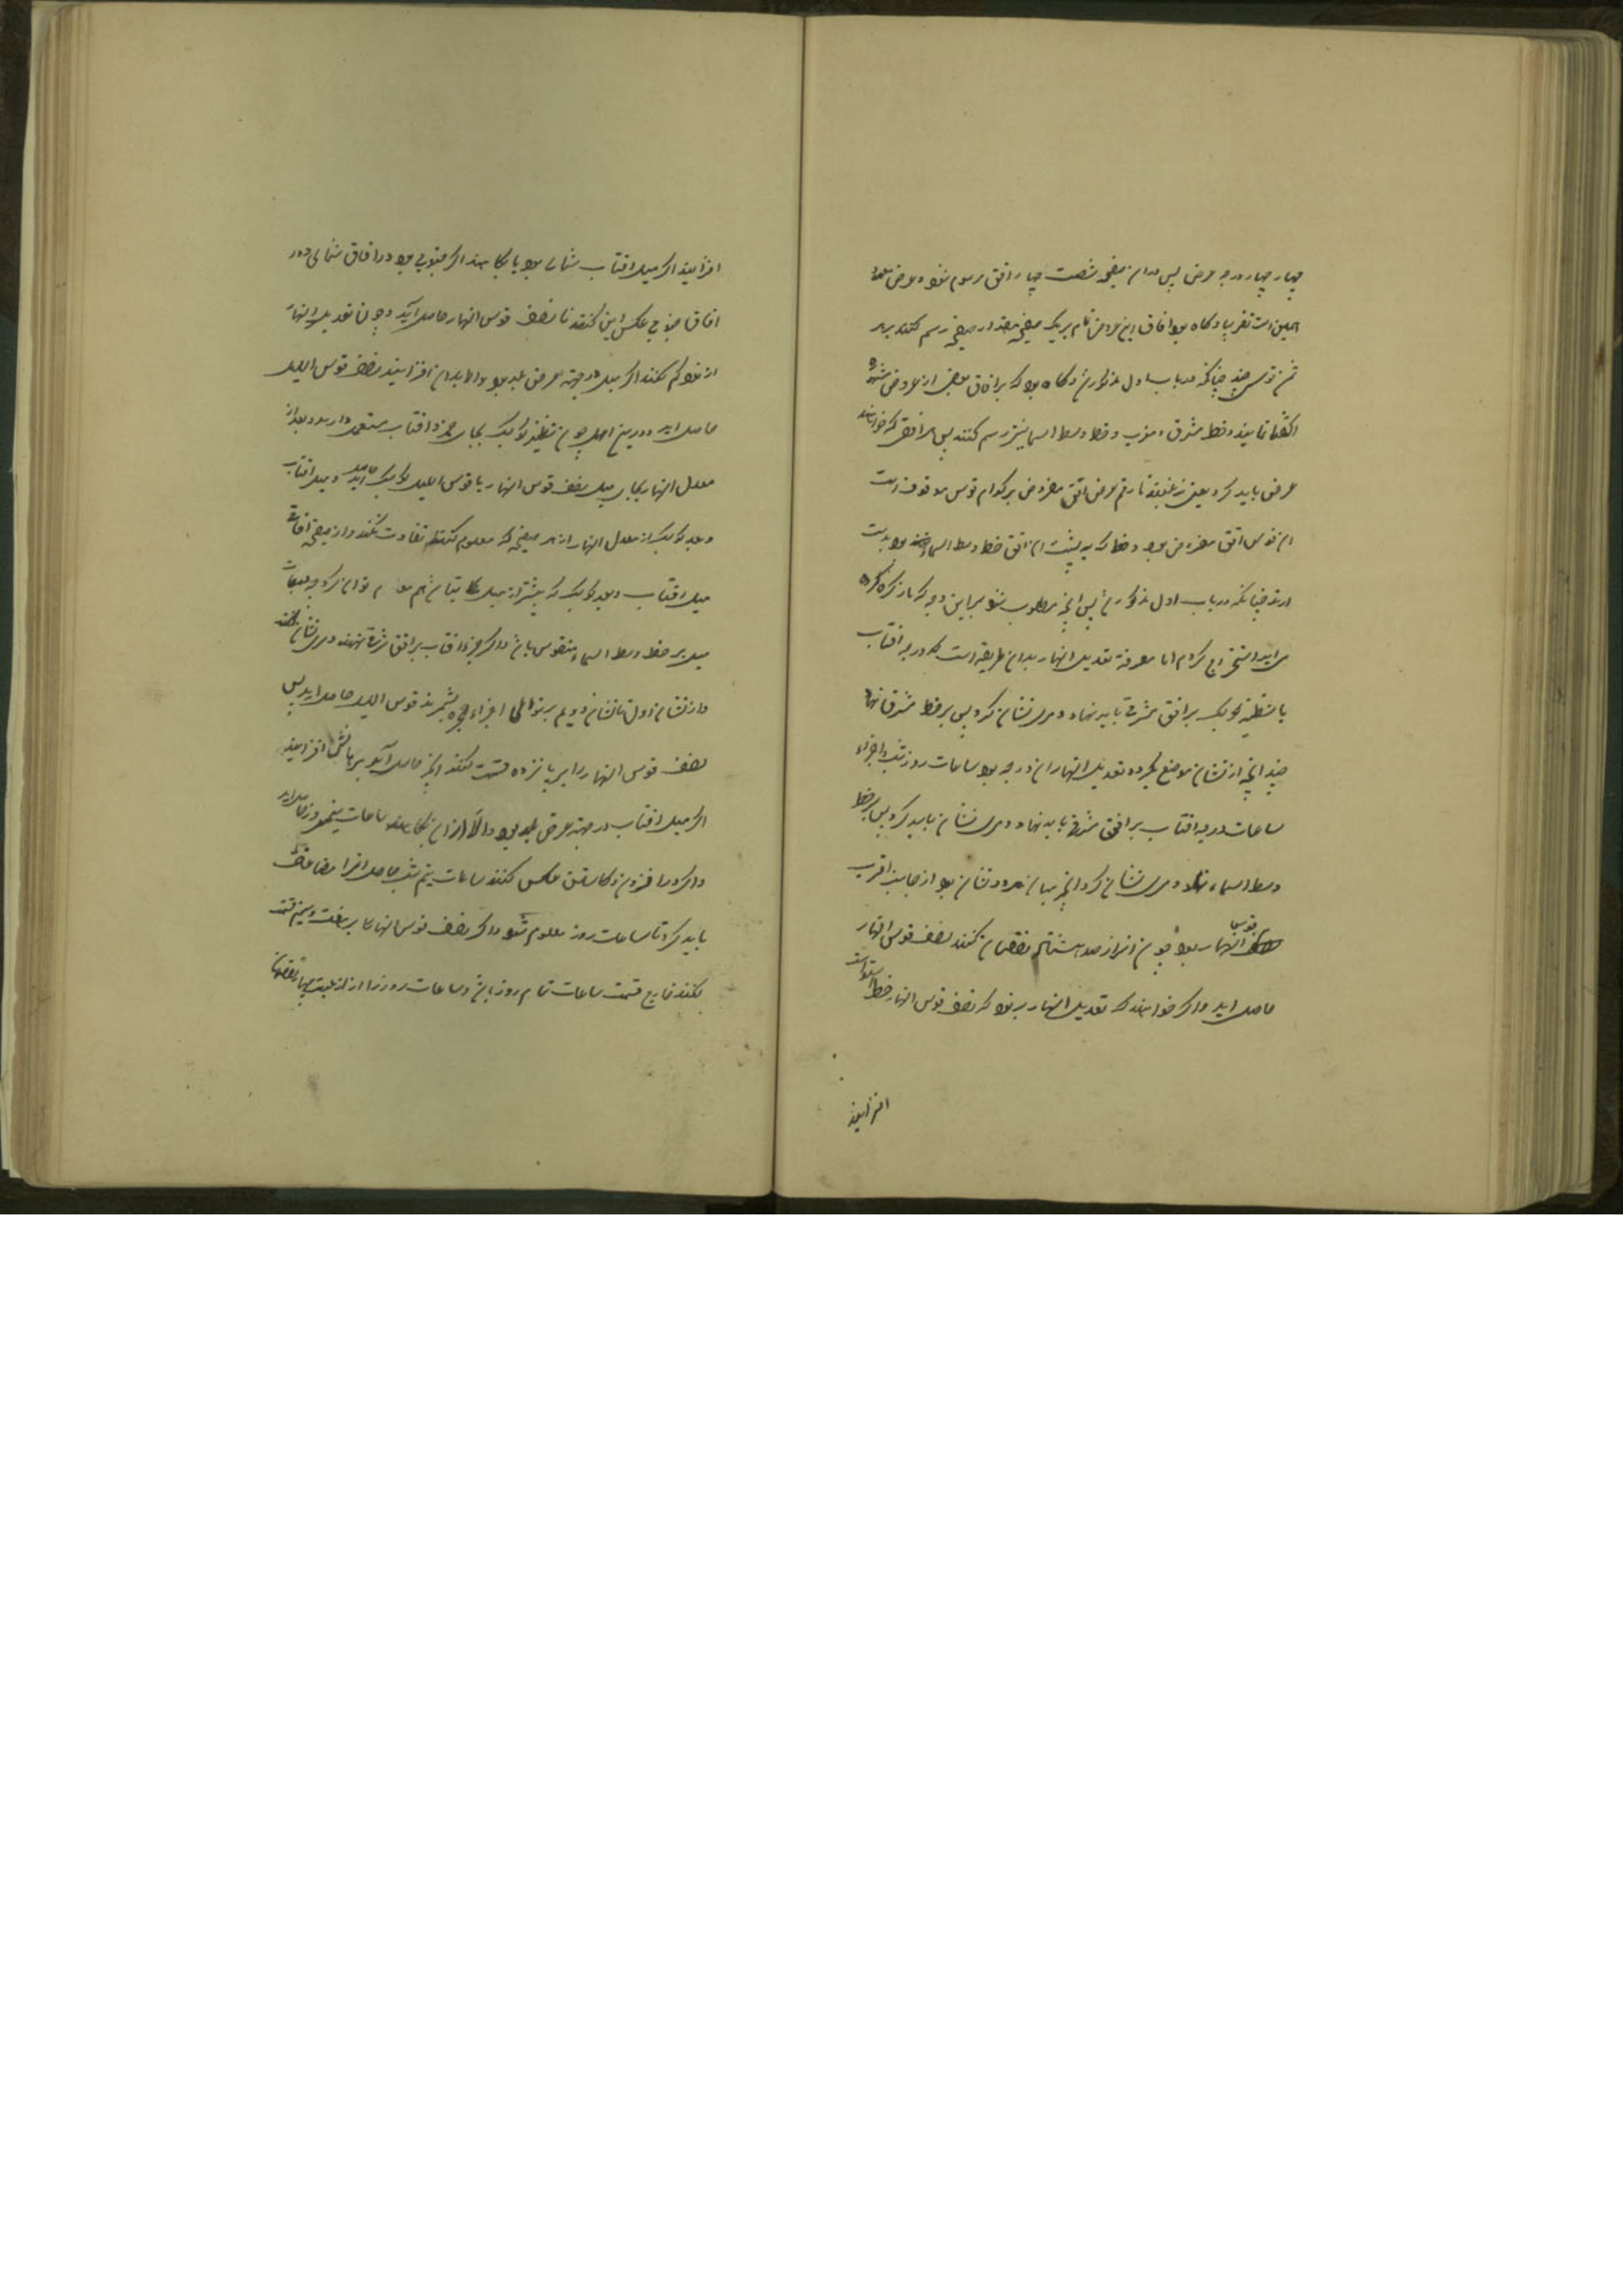 چهار چهار درجه عرض پس بدان صفحه شصت چهار افق مرسوم شود و عرض
اینست تقریبا و کاه بود افاق این عروض تمام بریک صفحه مقدار صفحه رسم کنند بر
چند چنانکه در باب اول مذکور شد و کاه بود که بر افاق بعضی از عروض
اکتفا نمایند و خط مشرق و مغرب و خط وسط السما نیز رسم کنند پس هر افقی که خواهند
عرض باید کرد یعنی تا رقم عرض افق مفروض بر کدام قوس موقوفست
ان قوس افق مفروض بود و خطی که به پشت ان افق خط وسط السما بود بدست
ارند چنانکه در باب اول مذکور شد پس انچه مطلوب شود بر این وجه که یاد کرده
می اید استخراج کردم اما معرفة تعدیل النهار بدان طریقه است که درجه افتاب
یا نظیر کوکب بر افق شرقی باید نهاد و مری نشان کرد پس بر خط مشرق نهاد
چند انچه از نشان موضع بگردد تعدیل النهار ان درجه بود ساعات روز شب و اجزاء
ساعات درجه افتاب بر افق شرقی باید نهاد و مری نشان باید کرد پس بر خط
وسط السماء نهاد و مری نشان کرد انچه میان هر دو نشان بود از جانب اقرب
قوس النهار بود چون انرا از صد هشتاد نقصان کنند نصف قوس النهار
حاصل اید و اگر خواهند که تعدیل النهار بر نود که نصف قوس النهار خط استواست
افزایند
افزایند اگر میل افتاب شمالی بود یا بکاهند اگر جنوبی بود در افاق شمالی و در
افاق جنوبی عکس این کنند تا نصف قوس النهار حاصل آید و چون تعدیل النهار
از نود کم کنند اگر میل در جهة عرض بلد بود والا بدان افزایند نصف قوس اللیل
حاصل اید و درین اعمال چون نظیر کوکب بجای جزو افتاب مستعمل دارند و بعد از
معدل النهار بجای میل نصف قوس النهار یا قوس اللیل کوکب حاصل اید و میل افتاب
و بعد کوکب از معدل النهار از هر صفحه که معلوم کنند تفاوت نکند و از صفحه افاقی
میل افتاب و بعد کوکب که بیشتر از میل کلی نباشد هم معلوم توان کرد چه
میل بر خط وسط السماء منقوس باشد و اگر جزو افتاب بر افق شرقی نهند و مری نشان کنند
و از نشان اول تا نشان دویم بر توالی اجزاء حجره بشمرند قوس اللیل حاصل اید پس
نصف قوس النهار را بر پانزده قسمت کنند انچه حاصل آید بر شش افزایند
اگر میل افتاب در جهة عرض بلد بود والا از ان بکاهند ساعات نیم روز حاصل اید
و اگر در افزودن و کاستن عکس کنند ساعات نیم شب حاصل انرا مضاعف
باید کرد تا ساعات روز معلوم شود و اگر نصف قوس النهار را بر هفت و نیم قسمت
بکنند خارج قسمت ساعات تمام روز باشد و ساعات روز را از بیست چهار نقصان